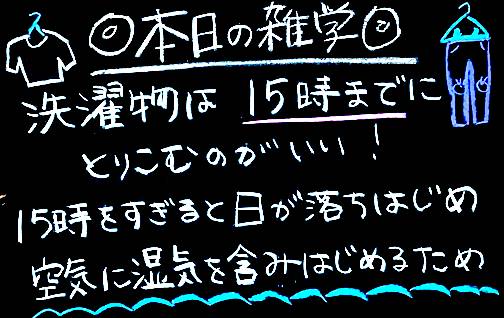 ◎本日の雑学◎
洗濯物は15時までに
とりこむのがいい!
15時をすぎると日が落ちはじめ
空気に湿気を含みはじめるため